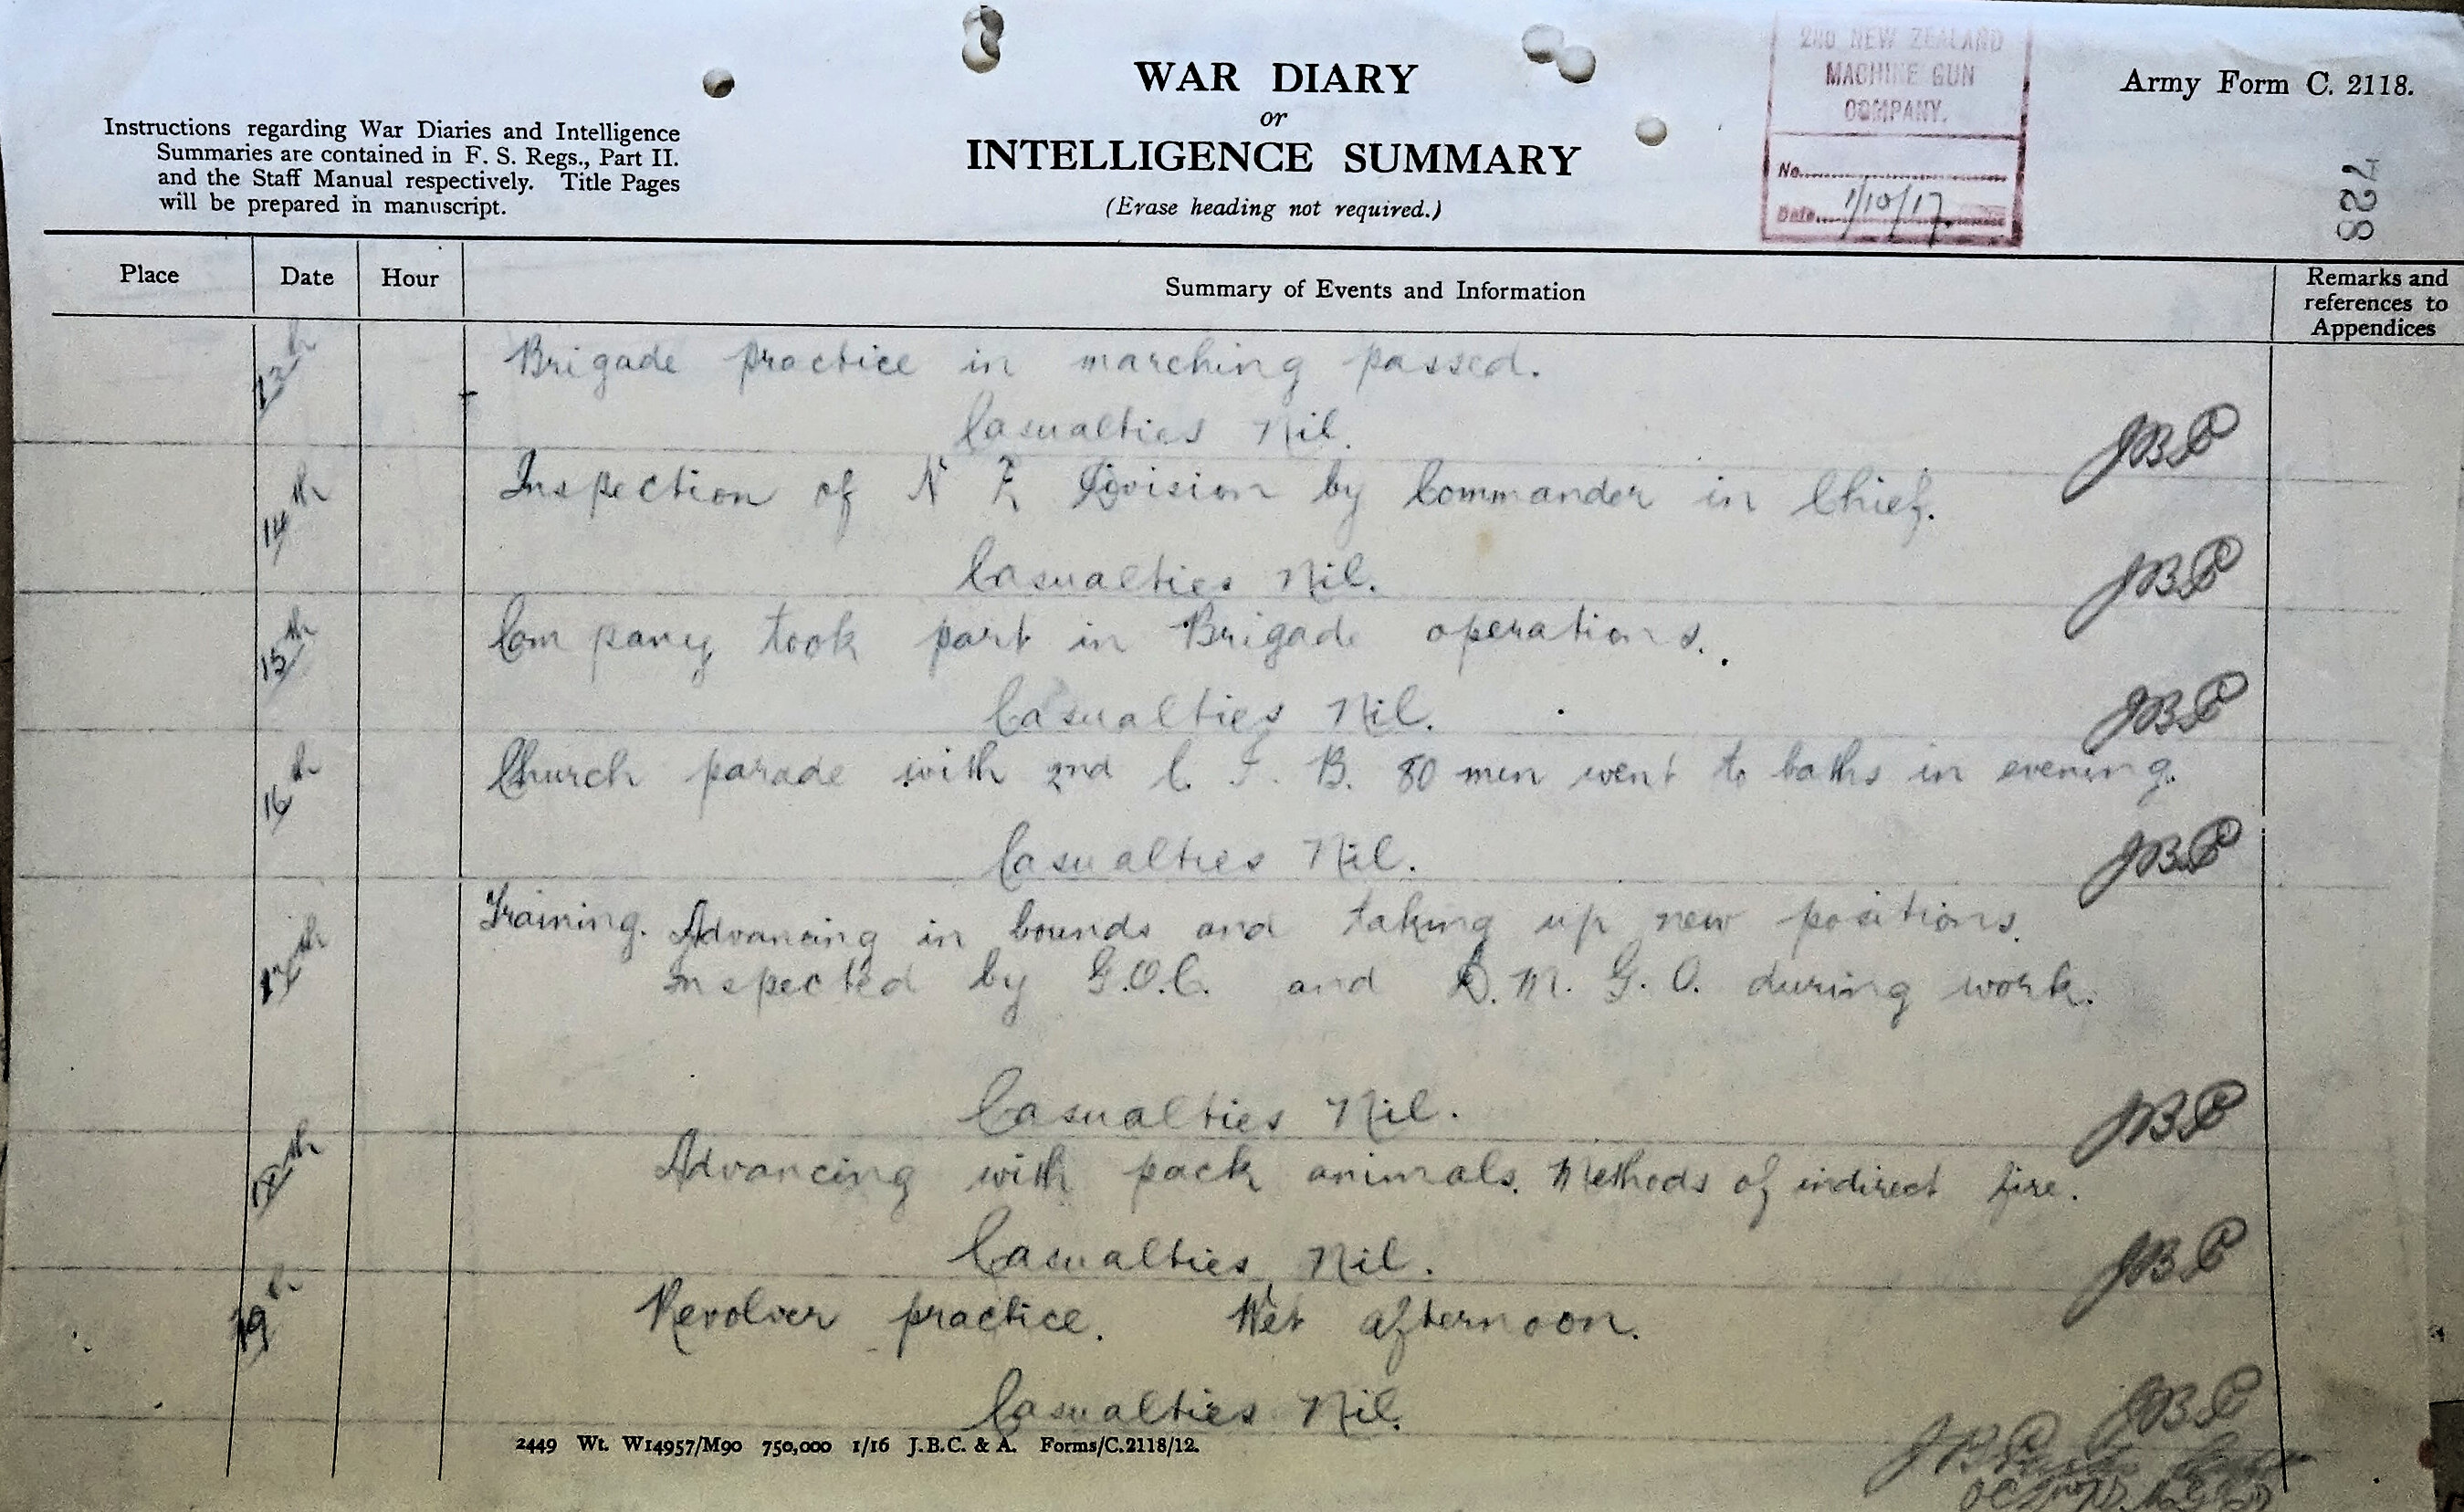 WAR DIARY
or
INTELLIGENCE SUMMARY
(Erase heading not required.)
Instructions regarding War Diaries and Intelligence
Summaries are contained in F. S. Regs., Part II.
and the Staff Manual respectively. Title Pages
will be prepared in manuscript.
2ND NEW ZEALAND
MACHINE GUN
COMPANY.
No.
Date 1/10/17.
Army Form C. 2118.
728
Place Date Hour Summary of Events and Information Remarks and references to Appendices
13th Brigade practice in marching passed.
Casualties Nil. JBP
14th Inspection of N Z Division by Commander in Chief.
Casualties Nil. JBP
15th Company took part in Brigade operations.
Casualties Nil. JBP
16th Church parade with 2nd C. I. B. 80 men went to baths in evening.
Casualties Nil. JBP
17th Training. Advancing in bounds and taking up new positions.
Inspected by G.O.C. and D. M. G. O. during work.
Casualties Nil. JBP
18th Advancing with pack animals. Methods of indirect fire.
Casualties Nil. JBP
19th Revolver practice. Wet afternoon.
Casualties Nil. JBP
2449 Wt. W14957/M90 750,000 1/16 J.B.C. & A. Forms/C.2118/12.
JBP